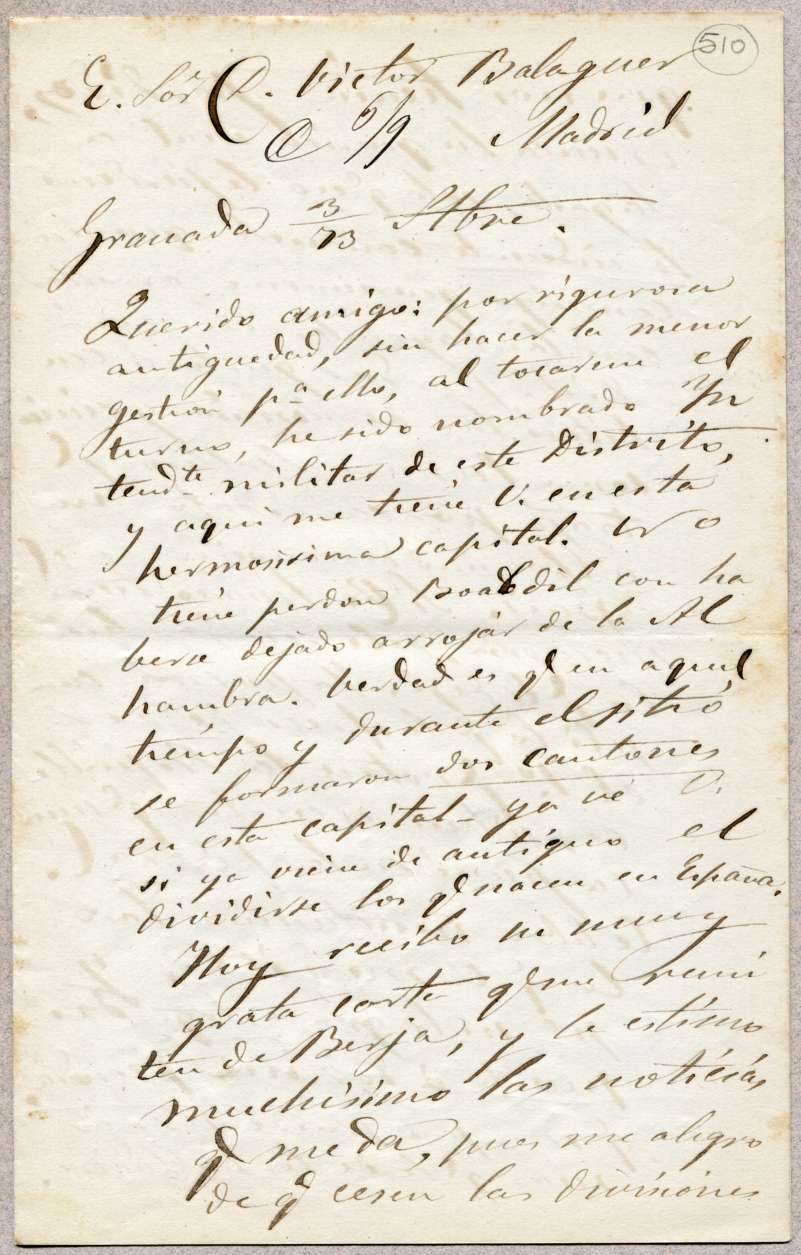 510
E. Sor D. Victor Balaguer
C 6/9 Madrid
Granada 3/73 Stbre.
Querido amigo: por rigurosa
antiguedad, sin hacer la menor
gestion pa ello, al tocarme el
turno, he sido nombrado Yn
tendte militar de este Distrito,
y aqui me tiene V. en esta
hermosisima capital. No
tiene perdon Boabdil con ha
berse dejado arrojar de la Al
hambra. Verdad es q en aquel
tiempo y durante el sitio
se formaron dos cantones
en esta capital - ya vé V.
si ya viene de antiguo el
dividirse los q nacen en España.
Hoy recibo su muy
grata carta q me remi
ten de Berja, y le estimo
muchisimo las noticias,
q me da, pues me alegro
de q cesen las divisiones